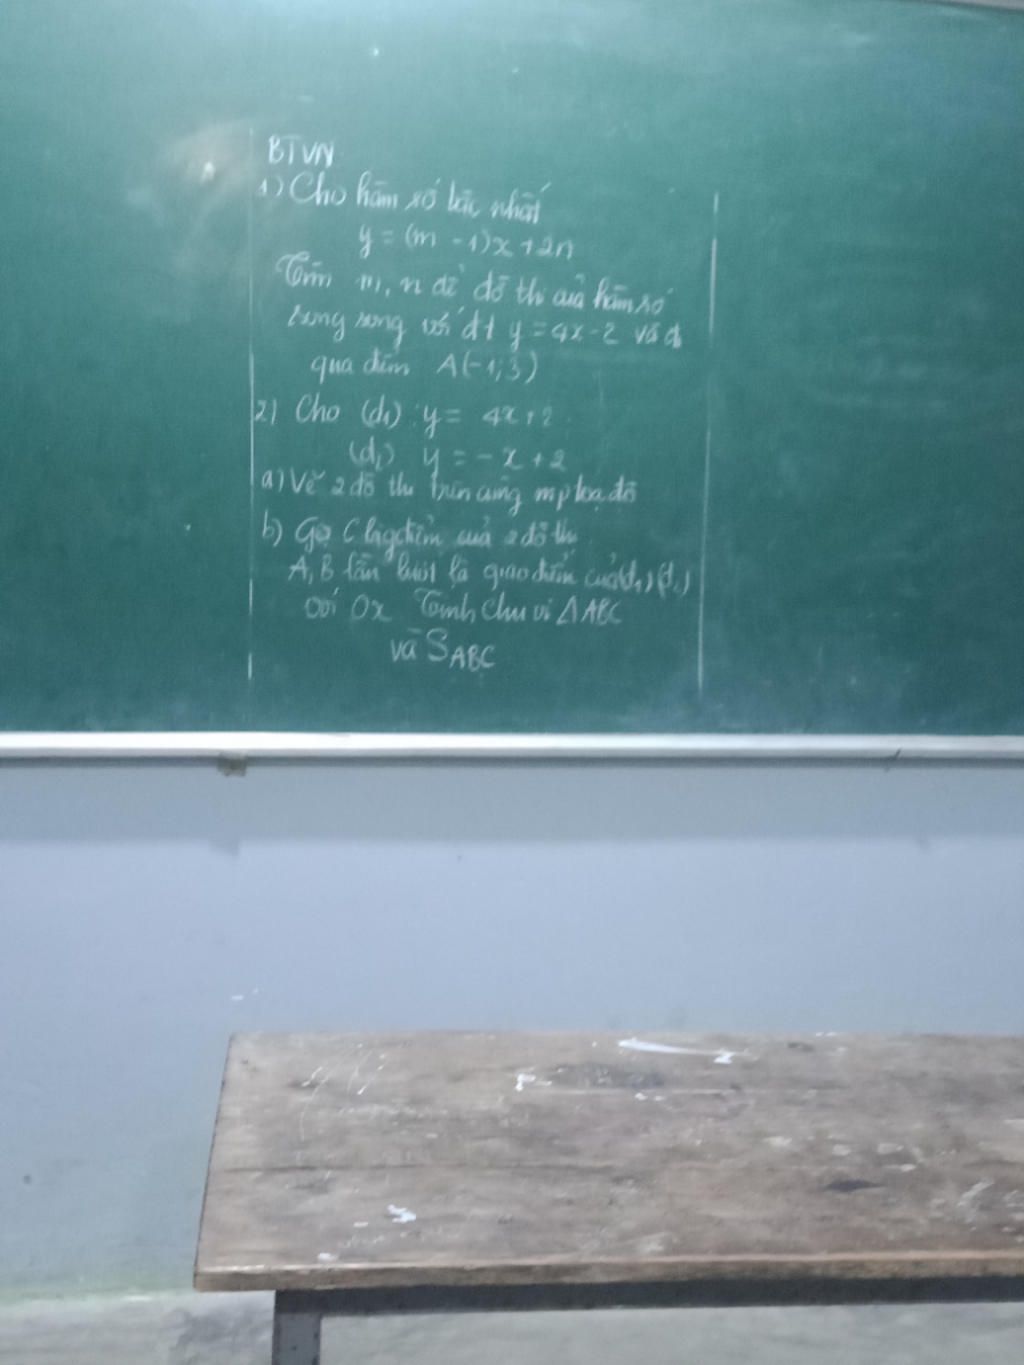 BTVN
1) Cho hàm số bậc nhất
y = (m - 1)x + 2n
Tìm m, n để đồ thị của hàm số
song song với đt y = 4x - 2 và đi
qua điểm A(-1; 3)
2) Cho (d₁) : y = 4x + 2
(d₂) y = - x + 2
a) Vẽ 2 đồ thị trên cùng mp toạ độ
b) Gọi C là gđiểm của 2 đồ thị
A, B lần lượt là giao điểm của (d₁) (d₂)
với Ox Tính chu vi ΔABC
và S_ABC